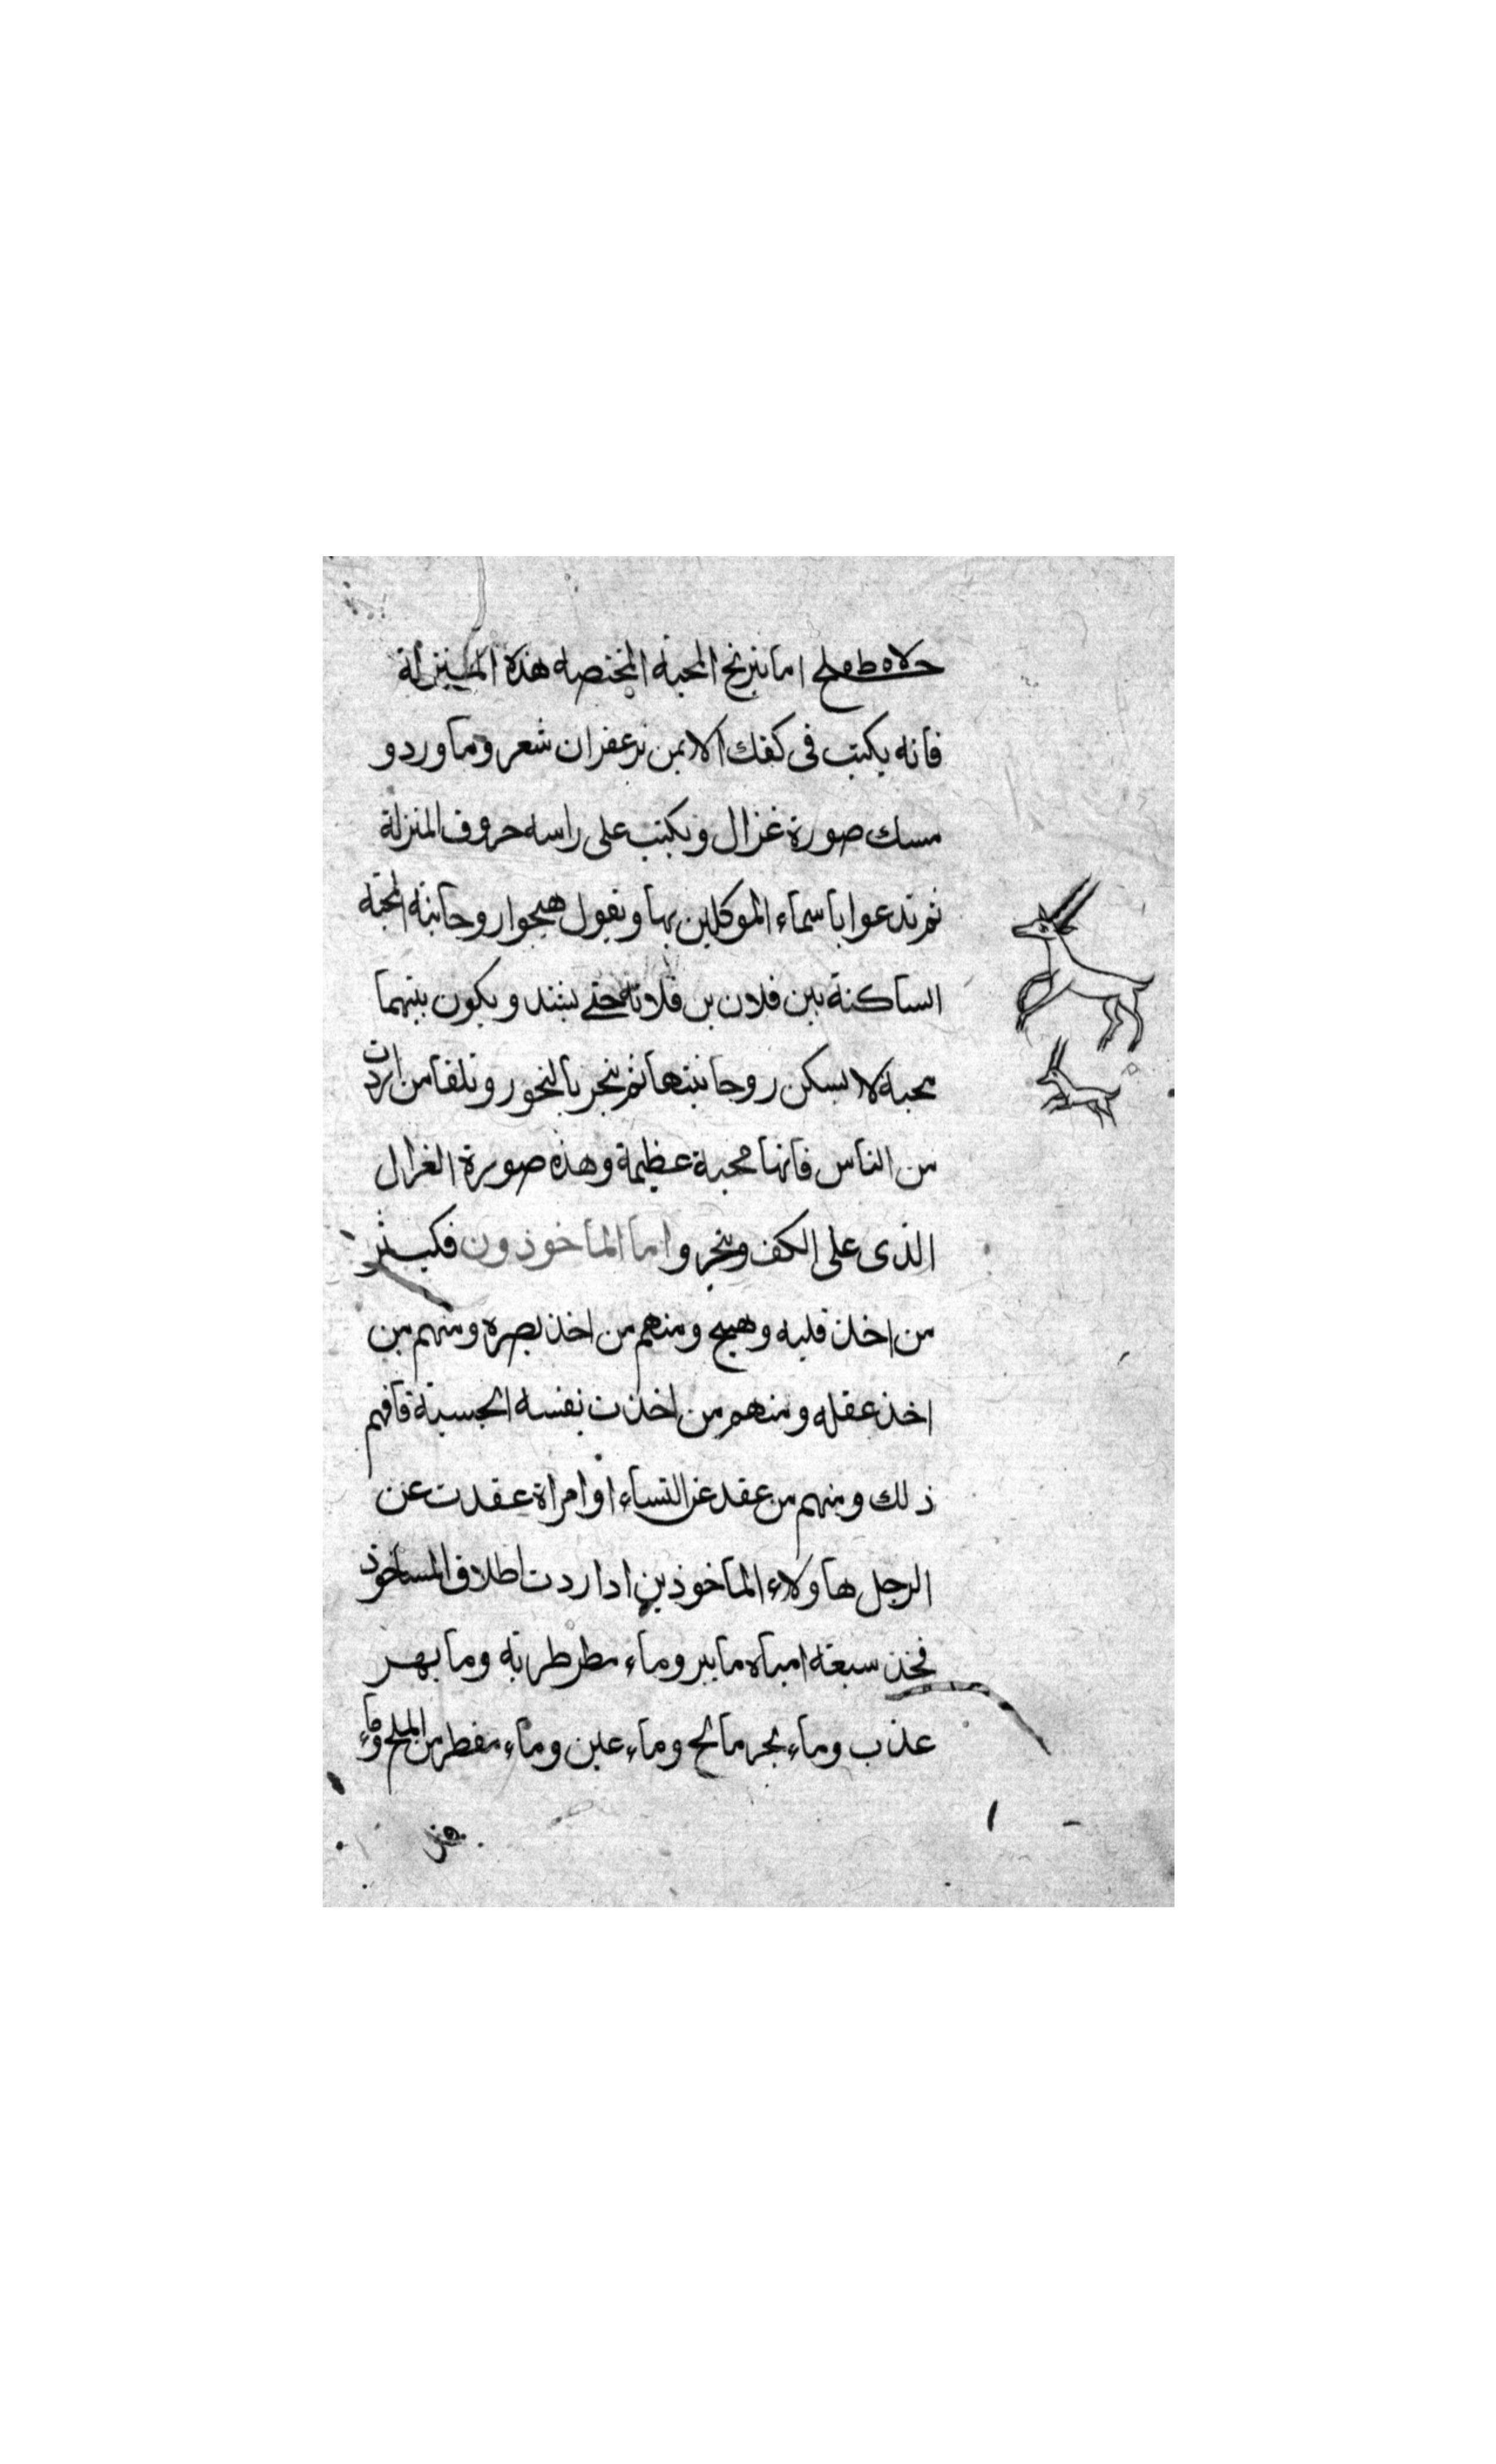 اما نيرنج المحبة المختصه هذه المنزلة
فانه يكتب فى كفك الايمن زعفران شعر وماورد و
مسك صورة غزال ويكتب على راسه حروف المنزلة
ثم تدعوا باسماء الموكلين بها وتقول هيجوا روحانية المحبة
الساكنة بين فلان بن فلانة حتى تشتد ويكون بينهما
محبة لا تسكن روحانيتها ثم تبخر بالبخور وتلقا من اردت
من الناس فانها محبة عظيمة وهذه صورة الغزال
الذى على الكف وتبخر واما الماخوذون فكيثر
من اخذ قلبه وهيج ومنهم من اخذ بصره ومنهم من
اخذ عقله ومنهم من اخذت نفسه الحسية فافهم
ذلك ومنهم من عقد عن النساء او امراة عقدت عن
الرجل هاولاء الماخوذين اذا اردت اطلاق الماخوذ
فخذ سبعة امياه ما بير وماء مطر طريه وما نهر
عذب وماء بحر مالح وماء عين وماء مقطر من الملح وماء